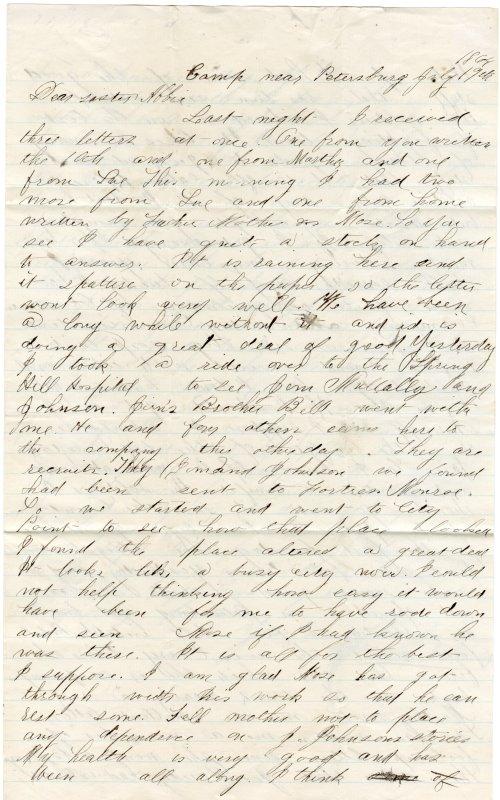 1864
Camp near Petersburg July 19th
Dear sister Abbie
Last night I received
three letters at once. One from you written
the 10th and one from Martha and one
from Lue This morning I had two
more from Lue and one from home
written by Father Mother & Mose. So you
see I have quite a stock on hand
to answer. It is raining here and
it spatures on the paper so the letter
wont look very well. We have been
a long while without it and it is
doing a great deal of good. Yesterday
I took a ride over to the Spring
Hill Hospital to see Jim Mullally and
Johnson. Jim's Brother Bill went with
me. He and four others came here to
the company the other day. They are
recruits. They Jim and Johnson we found
had been sent to Fortress Monroe.
So we started and went to City
Point to see how that place looked
I found the place altered a great deal
It looks like a busy city now. I could
not help thinking how easy it would
have been for me to have rode down
and seen Mose if I had known he
was there. It is all for the best
I suppose. I am glad Mose has got
through with his work so that he can
rest some. Tell mother not to place
any dependence on J. Johnsons stories
My health is very good and has
been all along. I think of